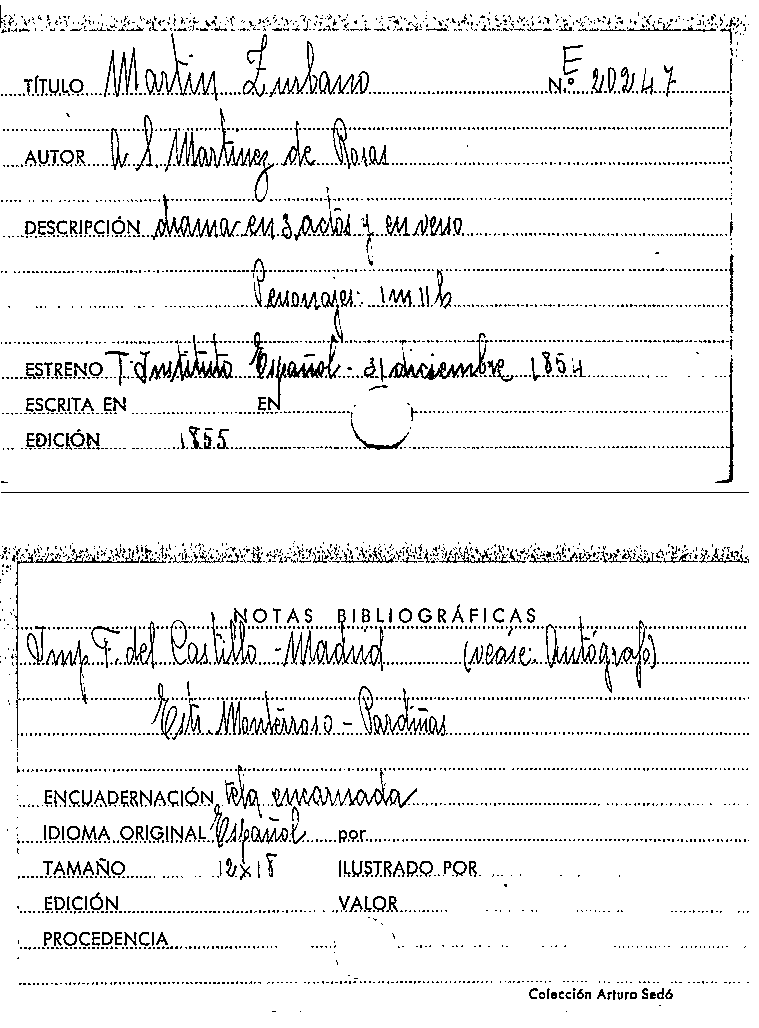 TÍTULO Martin Zurbano N.º E 20247
AUTOR A S. Martinez de Rosas
DESCRIPCIÓN drama en 3 actos y en verso
Personajes: 1m 11h
ESTRENO T. Instituto Español - 31 diciembre 1854
ESCRITA EN EN
EDICIÓN 1855
NOTAS BIBLIOGRÁFICAS
Imp. F. del Castillo - Madrid (vease: Autógrafo)
Estr. Monterroso - Pardiñas
ENCUADERNACIÓN tela encarnada
IDIOMA ORIGINAL Español por
TAMAÑO 12x18 ILUSTRADO POR
EDICIÓN VALOR
PROCEDENCIA
Colección Arturo Sedó